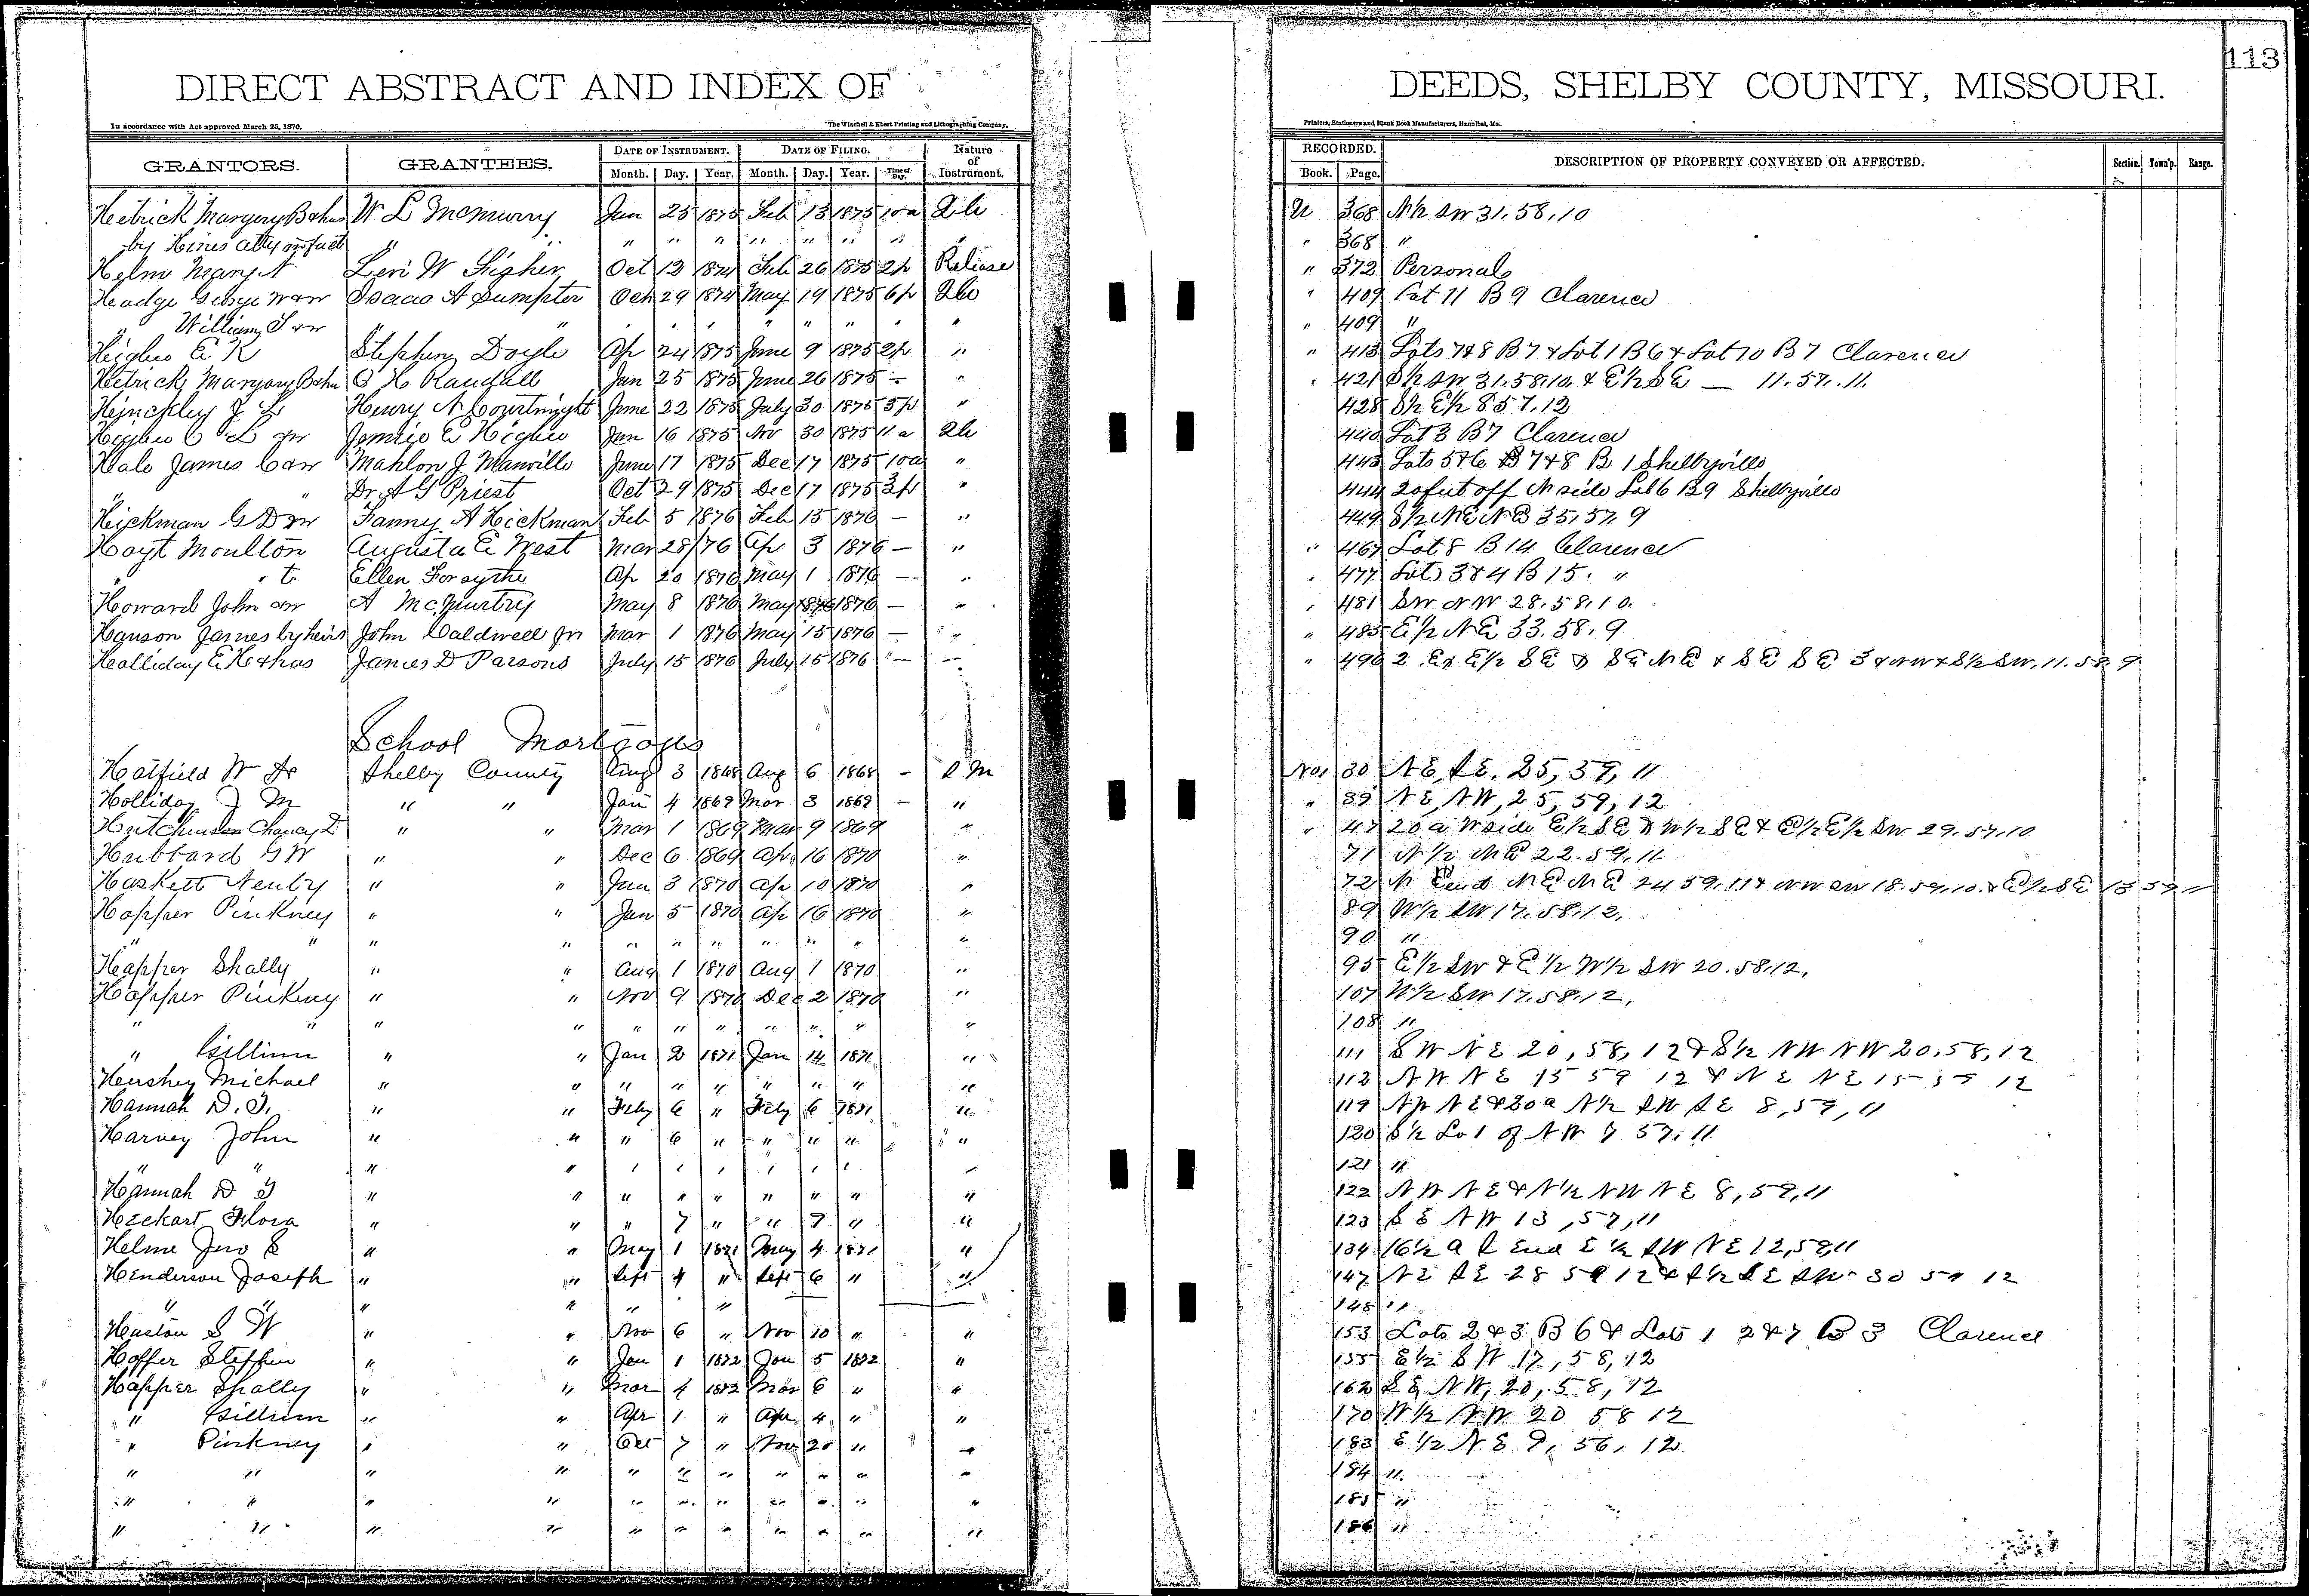 113
DIRECT ABSTRACT AND INDEX OF DEEDS, SHELBY COUNTY, MISSOURI.
In accordance with Act approved March 25, 1870. The Winchell & Ebert Printing and Lithographing Company, Printers, Stationers and Blank Book Manufacturers, Hannibal, Mo.
GRANTORS. GRANTEES. DATE OF INSTRUMENT. DATE OF FILING. Nature of Instrument. RECORDED. DESCRIPTION OF PROPERTY CONVEYED OR AFFECTED. Section. Town'p. Range.
Month. Day. Year. Month. Day. Year. Time of Day. Book. Page.
Hetrick Margery B & hus W L McMurry Jan 25 1875 Feb 13 1875 10a 368 N½ SW 31, 58, 10
by Hines atty in fact " " " " " " " " " " 368 "
Helm Mary N Levi W Fisher Oct 12 1874 Feb 26 1875 2p Release " 372 Personal
Headge George W & w Isaac A Sumpter Oct 29 1874 May 19 1875 6p " 409 Lot 11 B 9 Clarence
" William S & w " " " " " " " " " " 409 "
Highee E K Stephen Doyle Ap 24 1875 June 9 1875 2p " " 413 Lots 7 & 8 B 7 & Lot 1 B 6 & Lot 10 B 7 Clarence
Hetrick Margary B & hu O H Randall Jan 25 1875 June 26 1875 - " " 421 S½ SW 31, 58, 10 & E½ SE — 11. 57. 11.
Hinckley J L Henry N Courtnight June 22 1875 July 30 1875 3p " 428 S½ E½ 8 57, 12
Highee C L & w Jennie E Highee Jan 16 1875 Nov 30 1875 11a 440 Lot 3 B 7 Clarence
Hale James C & w Mahlon J Manville June 17 1875 Dec 17 1875 10a " 443 Lots 5 & 6 & 7 & 8 B 1 Shelbyville
" " Dr A G Priest Oct 29 1875 Dec 17 1875 3p " 444 20 feet off N side Lot 6 B 9 Shelbyville
Hickman G D & w Fanny A Hickman Feb 5 1876 Feb 15 1876 — " 449 S½ NE NE 35, 57, 9
Hoyt Moulton Augusta E West Mar 28 /76 Ap 3 1876 — " " 467 Lot 8 B 14 Clarence
" " Ellen Forsythe Ap 20 1876 May 1 1876 — " " 477 Lots 3 & 4 B 15. "
Howard John & w A McMurtry May 8 1876 May 1876 — " " 481 SW NW 28. 58. 10.
Hanson James by heirs John Caldwell Jr Mar 1 1876 May 15 1876 — " " 485 E½ NE 33. 58. 9
Halliday E K & hus James D Parsons July 15 1876 July 15 1876 — " " 496 SE NE & SE SE 3 & NW & S½ SW. 11. 58 9
School Mortgages
Hatfield W Shelby County Aug 3 1868 Aug 6 1868 - S M No 1 30 NE SE. 25, 59, 11
Holliday J M " " Jan 4 1869 Mar 3 1869 - " " 39 NE NW, 25, 59, 12
Hutchinson Chancy D " " Mar 1 1869 Mar 9 1869 " " 47 20 a W side E½ SE & W½ SE & E½ E½ SW 29. 57. 10
Hubbard G W " " Dec 6 1869 Ap 16 1870 " 71 N½ NE 22. 59. 11.
Haskett Newby " " Jan 3 1870 Ap 10 1870 " 72 NE NE 24 59. 11 & NW SW 18. 59. 10. & E½ SE 13 59 11
Hopper Pinkney " " Jan 5 1870 Ap 16 1870 " 89 W½ SW 17. 58. 12.
" " " " " " " " " " " 90 "
Happer Shally " " Aug 1 1870 Aug 1 1870 " 95 E½ SW & E½ W½ SW 20. 58. 12.
Hopper Pinkney " " Nov 9 1870 Dec 2 1870 " 107 W½ SW 17. 58. 12.
" " " " " " " " " " " 108 "
" Gillinn " " Jan 2 1871 Jan 14 1871 " 111 SW NE 20, 58, 12 & S½ NW NW 20, 58, 12
Hershey Michael " " " " " " " " " 112 NW NE 15 59 12 & NE NE 15 59 12
Hannah D. T. " " Feby 6 " Feby 6 1871 " 119 N½ NE & 30 a N½ SW SE 8, 59, 11
Harvey John " " " 6 " " " " " 120 S½ Lo 1 of NW 7 57, 11
" " " " " " " " " " " 121 "
Hannah D T " " " " " " " " " 122 NW NE & N½ NW NE 8, 59, 11
Heckart Flora " " " 7 " " 7 " " 123 SE NW 13, 57, 11
Helme Jno S " " May 1 1871 May 4 1871 " 134 16½ a S End E½ SW NE 12, 59, 11
Henderson Joseph " " Sept 4 " Sept 6 " " 147 NE SE 28 59 12 & S½ SE SW 30 59 12
" " " " " " 148 "
Huston S W " " Nov 6 " Nov 10 " " 153 Lots 2 & 3 B 6 & Lots 1 2 & 7 B 3 Clarence
Hoffer Stephen " " Jan 1 1872 Jan 5 1872 " 155 E½ SW 17, 58, 12
Happer Shally " " Mar 4 1872 Mar 6 " " 162 SE NW, 20, 58, 12
" Gillinn " " Apr 1 " Apr 4 " " 170 W½ NW 20 58 12
" Pinkney " " Oct 7 " Nov 20 " " 183 E½ NE 9, 56, 12
" " " " " " " " " " " 184 "
" " " " " " " " " " " 185 "
" " " " " " " " " " " 186 "